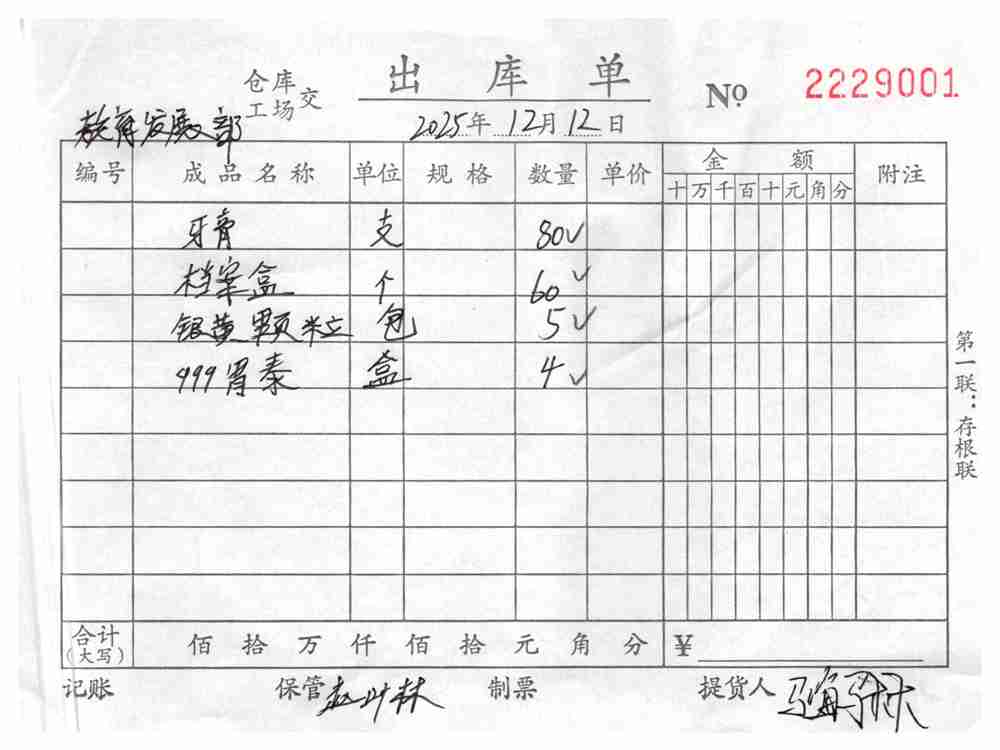 出库单
仓库
工场交
No 2229001
教育发展部
2025年12月12日
编号 成品名称 单位 规格 数量 单价 金额 附注
十万千百十元角分
牙膏 支 80✓
档案盒 个 60✓
银黄颗粒 包 5✓
999胃泰 盒 4✓
第一联：存根联
合计(大写) 佰拾万仟佰拾元角分 ¥
记账 保管 赵叶林 制票 提货人